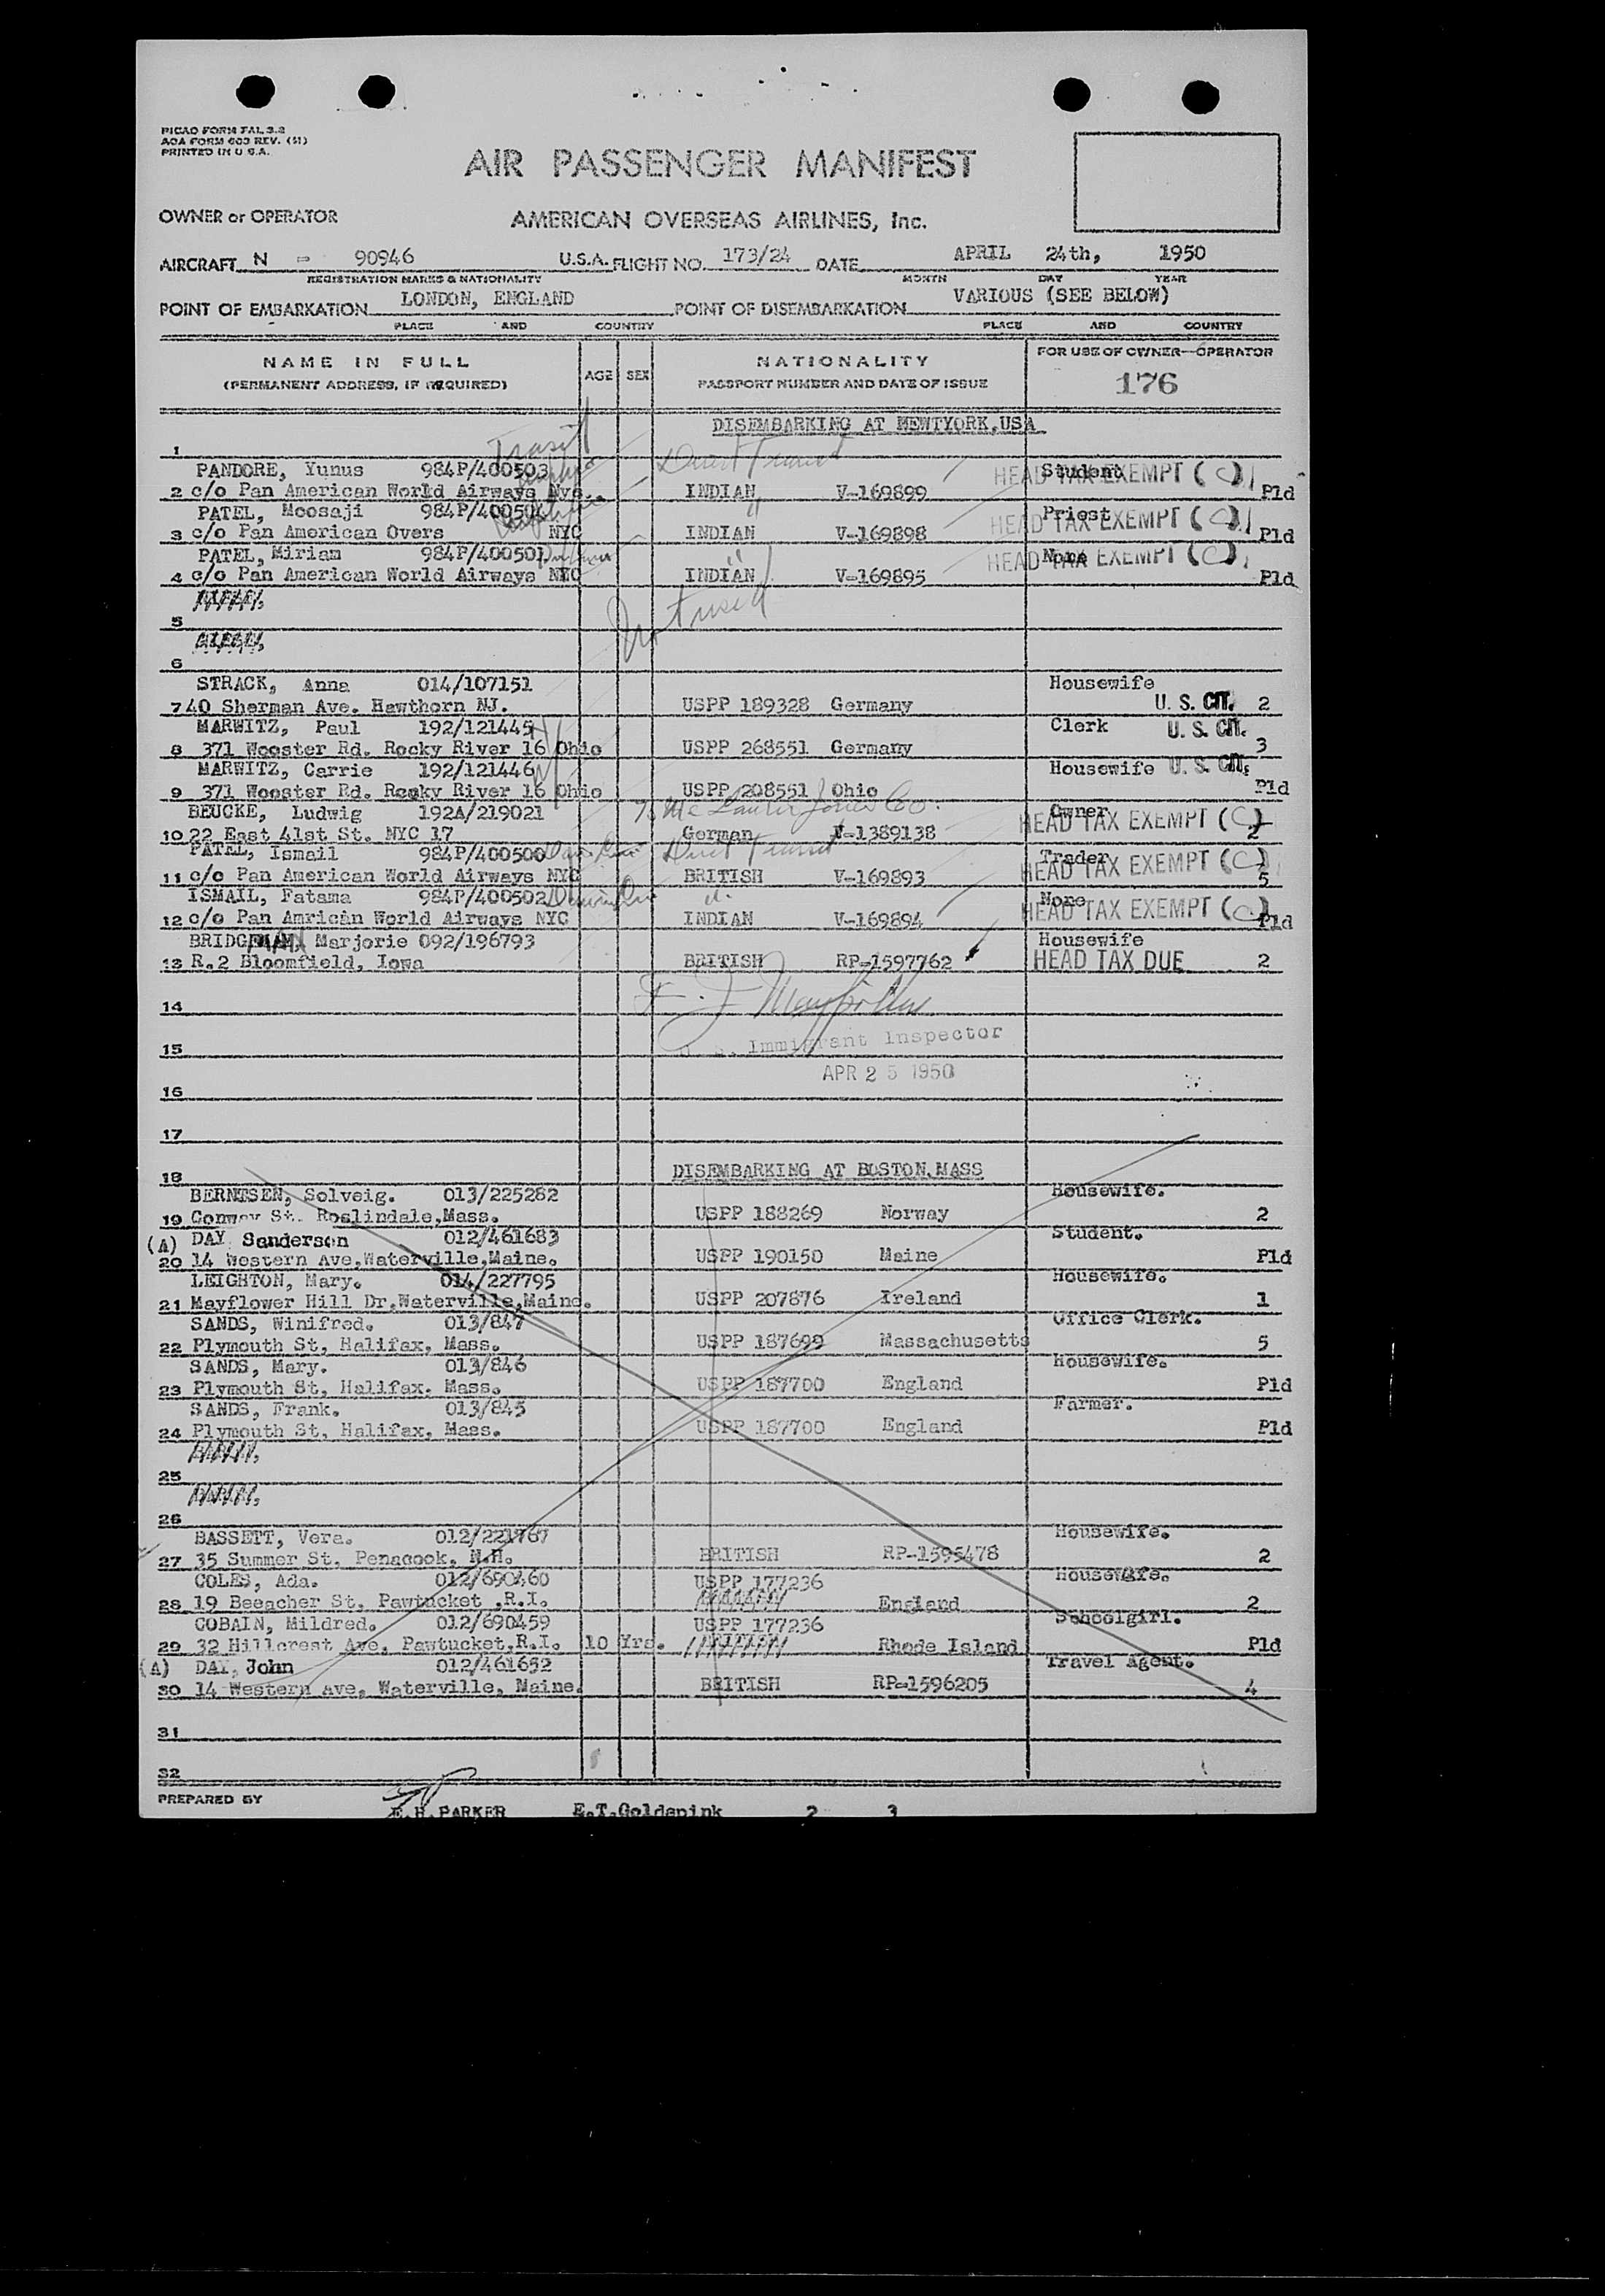 PICAO FORM FAL 3.2
AOA FORM 603 REV. (51)
PRINTED IN U.S.A.
AIR PASSENGER MANIFEST
OWNER or OPERATOR AMERICAN OVERSEAS AIRLINES, Inc.
AIRCRAFT N - 90946 U.S.A. FLIGHT NO. 173/24 DATE APRIL 24th, 1950
REGISTRATION MARKS & NATIONALITY MONTH DAY YEAR
POINT OF EMBARKATION LONDON, ENGLAND POINT OF DISEMBARKATION VARIOUS (SEE BELOW)
PLACE AND COUNTRY PLACE AND COUNTRY
NAME IN FULL AGE SEX NATIONALITY FOR USE OF OWNER-OPERATOR
(PERMANENT ADDRESS, IF REQUIRED) PASSPORT NUMBER AND DATE OF ISSUE 176
DISEMBARKING AT NEWTYORK,USA
1 Transit
PANDORE, Yunus 984P/400503 Direct Transit Student HEAD TAX EXEMPT (C)
2 c/o Pan American World Airways Nyc. INDIAN V-169899 Pld
PATEL, Moosaji 984P/400504 " Priest HEAD TAX EXEMPT (C)
3 c/o Pan American Overs NYC INDIAN V-169898 Pld
PATEL, Miriam 984P/400501 " None HEAD TAX EXEMPT (C)
4 c/o Pan American World Airways NYC INDIAN V-169895 Pld
5 Not used
6
STRACK, Anna 014/107151 Housewife
7 40 Sherman Ave. Hawthorn NJ. USPP 189328 Germany U. S. CIT. 2
MARWITZ, Paul 192/121445 Clerk U. S. CIT.
8 371 Wooster Rd. Rocky River 16 Ohio USPP 268551 Germany 3
MARWITZ, Carrie 192/121446 Housewife U. S. CIT.
9 371 Wooster Rd. Rocky River 16 Ohio USPP 208551 Ohio Pld
BEUCKE, Ludwig 192A/219021 Owner HEAD TAX EXEMPT (C)
10 22 East 41st St. NYC 17 German V-1389138 2
PATEL, Ismail 984P/400500 Direct Transit Trader HEAD TAX EXEMPT (C)
11 c/o Pan American World Airways NYC BRITISH V-169893 5
ISMAIL, Fatama 984P/400502 None HEAD TAX EXEMPT (C)
12 c/o Pan Amrican World Airways NYC INDIAN V-169894 Pld
BRIDGEMAN, Marjorie 092/196793 Housewife
13 R.2 Bloomfield, Iowa BRITISH RP-1597762 HEAD TAX DUE 2
14
15 U. S. Immigrant Inspector
16 APR 25 1950
17
18 DISEMBARKING AT BOSTON.MASS
BERNTSEN, Solveig. 013/225282 Housewife.
19 Conway St. Roslindale,Mass. USPP 188269 Norway 2
(A) DAY Sanderson 012/461683 Student.
20 14 Western Ave,Waterville,Maine. USPP 190150 Maine Pld
LEIGHTON, Mary. 014/227795 Housewife.
21 Mayflower Hill Dr,Waterville,Maine. USPP 207876 Ireland 1
SANDS, Winifred. 013/847 Office Clerk.
22 Plymouth St, Halifax, Mass. USPP 187699 Massachusetts 5
SANDS, Mary. 013/846 Housewife.
23 Plymouth St, Halifax. Mass. USPP 187700 England Pld
SANDS, Frank. 013/845 Farmer.
24 Plymouth St, Halifax, Mass. USPP 187700 England Pld
25
26
BASSETT, Vera. 012/221767 Housewife.
27 35 Summer St, Penacook, N.H. BRITISH RP-1595478 2
COLES, Ada. 012/690460 USPP 177236 Housewife.
28 19 Beeacher St, Pawtucket ,R.I. England 2
COBAIN, Mildred. 012/690459 USPP 177236 Schoolgirl.
29 32 Hillcrest Ave, Pawtucket,R.I. 10 Yrs. Rhode Island Pld
(A) DAY, John 012/461652 Travel Agent.
30 14 Western Ave, Waterville, Maine. BRITISH RP-1596205 4
31
32
PREPARED BY E.H.PARKER E.T.Goldspink 2 3